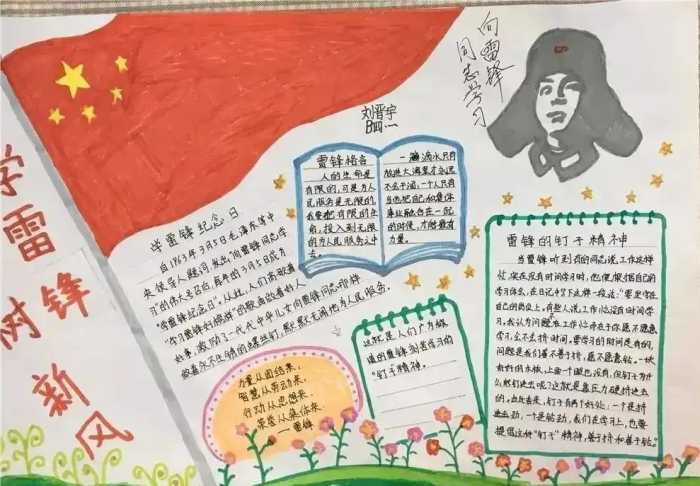 学雷锋
树新风
向雷锋
同志学习
刘晋宇
雷锋格言
人的生命是
有限的,可是为人
民服务是无限的,
我要把有限的生
命,投入到无限
的为人民服务之中
去。
一滴水只有
放进大海里才永远
不会干涸,一个人只有
当他把自己和集体
事业融合在一起
的时候,才能最有
力量。
学雷锋纪念日
自1963年3月5日毛泽东等中
央领导人题词发出“向雷锋同志学
习”的伟大号召后,每年的3月5日成为
“学雷锋纪念日”。从此,人们高歌着
“学习雷锋好榜样”的歌曲做着好人
好事,激励了一代代中华儿女向雷锋同志那样
做着永不生锈的螺丝钉,默默无闻地为人民服务。
力量从团结来,
智慧从劳动来,
行动从思想来,
荣誉从集体来
—雷锋
这就是人们广为颂
道的雷锋刻苦学习的
“钉子精神。
雷锋的钉子精神
当雷锋听到有的同志说,工作这样
忙,实在没有时间学习时,他便根据自己的
学习体会,在日记中写下这样一段话:“要坚守在
自己的岗位上。有些人说工作忙没有时间学
习,我认为问题不在工作忙而在于你愿不愿意
学,会不会挤时间。要学习的时间是有的,
问题是我们善不善于挤,愿不愿意钻。一块
好好的木板,上面一个眼也没有,但钉子为什
么能钉进去呢?这就是靠压力硬挤进去
的,由此看来,钉子有两个好处:一个是挤
进去劲,一个是钻劲,我们在学习上,也要
提倡这种“钉子”精神,善于挤和善于钻。”